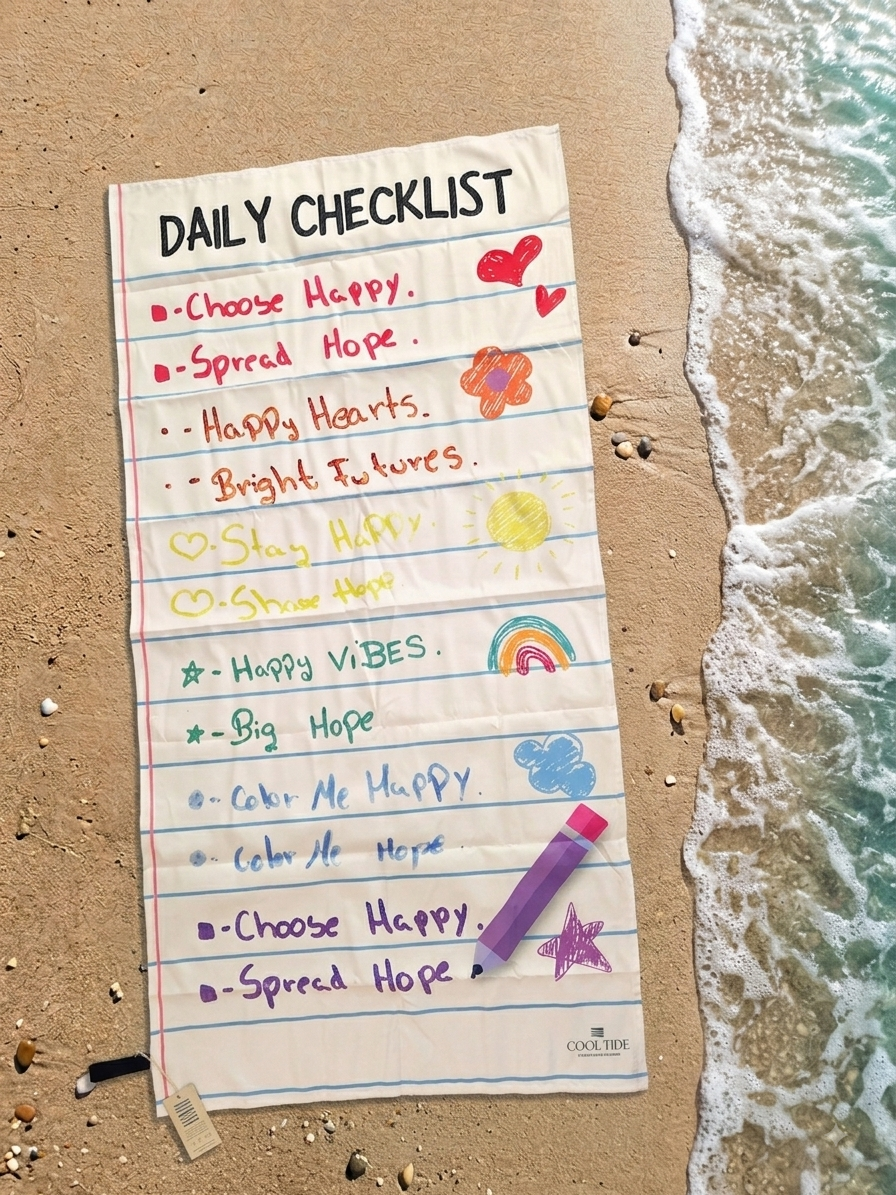 DAILY CHECKLIST
- Choose Happy.
- Spread Hope.
- Happy Hearts.
- Bright Futures.
- Stay Happy.
- Share Hope.
- Happy ViBES.
- Big Hope
- Color Me Happy.
- Color Me Hope
- Choose Happy.
- Spread Hope
COOL TIDE